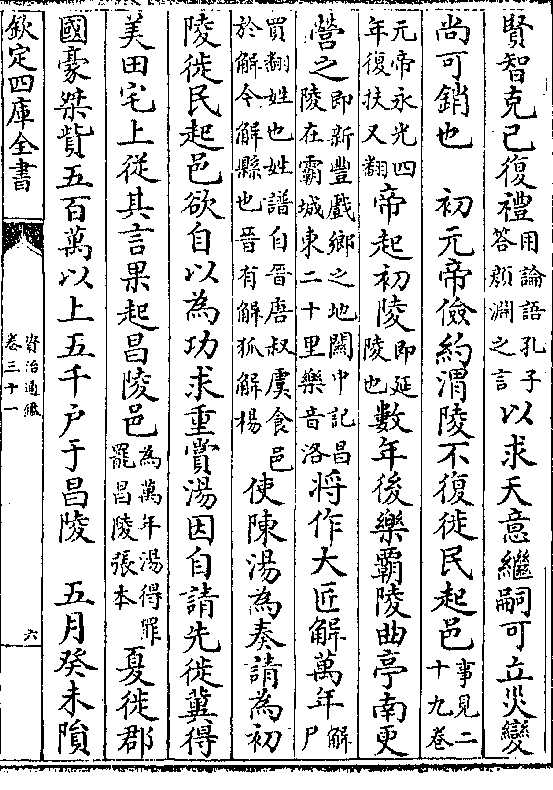 賢智克己復禮用論語孔子答顔淵之言以求天意繼嗣可立災變
尚可銷也　初元帝儉約渭陵不復徙民起邑事見二十九卷
元帝永光四年復扶又翻帝起初陵即延陵也數年後樂霸陵曲亭南更
營之即新豐戲鄉之地關中記昌陵在霸城東二十里樂音洛將作大匠解萬年解尸
買翻姓也姓譜自晉唐叔虞食邑於解今解縣也晉有解狐解楊使陳湯為奏請為初
陵徙民起邑欲自以為功求重賞湯因自請先徙冀得
美田宅上從其言果起昌陵邑為萬年湯得罪罷昌陵張本夏徙郡
國豪桀貲五百萬以上五千户于昌陵　五月癸未隕
欽定四庫全書
資治通鑑
卷三十一
六